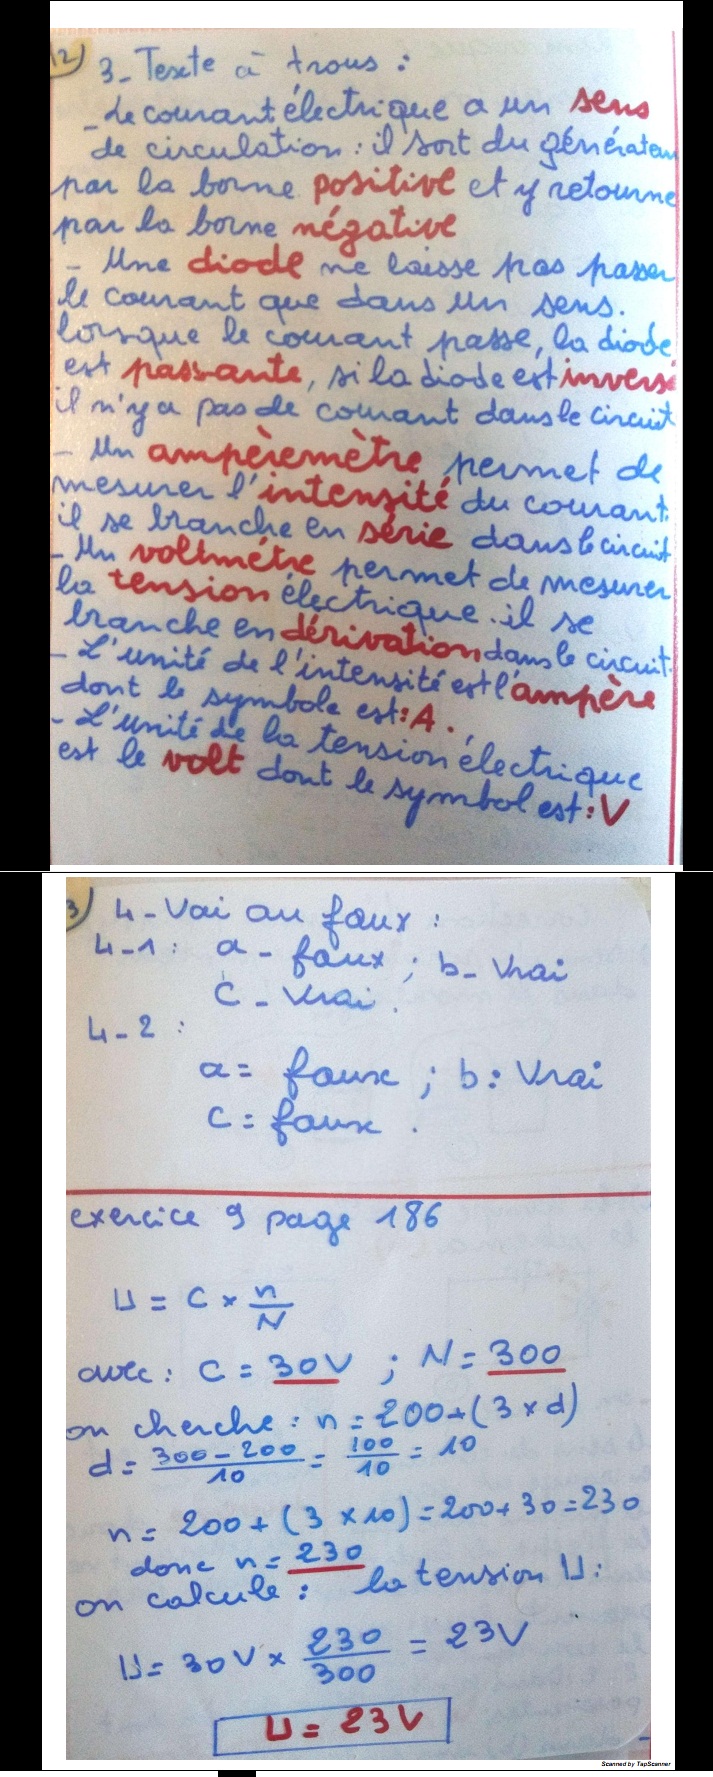 12) 3- Texte à trous :
- Le courant électrique a un sens
de circulation : il sort du générateur
par la borne positive et y retourne
par la borne négative
- Une diode ne laisse pas passer
le courant que dans un sens.
lorsque le courant passe, la diode
est passante, si la diode est inversé
il n'y a pas de courant dans le circuit
- Un ampèremètre permet de
mesurer l'intensité du courant.
il se branche en série dans le circuit
- Un voltmètre permet de mesurer
la tension électrique. il se
branche en dérivation dans le circuit.
- L'unité de l'intensité est l'ampère
dont le symbole est : A.
- L'unité de la tension électrique
est le volt dont le symbol est : V
3) 4- Vai ou faux :
4-1 : a - faux ; b- Vrai
C - Vrai.
4-2 :
a = faux ; b : Vrai
C = faux .
exercice 9 page 186
U = C × n/N
avec : C = 30V ; N = 300
on cherche : n = 200 + (3 × d)
d = 300 - 200 / 10 = 100/10 = 10
n = 200 + (3 × 10) = 200 + 30 = 230
donc n = 230
on calcule : la tension U :
U = 30V × 230/300 = 23V
U = 23V
Scanned by TapScanner